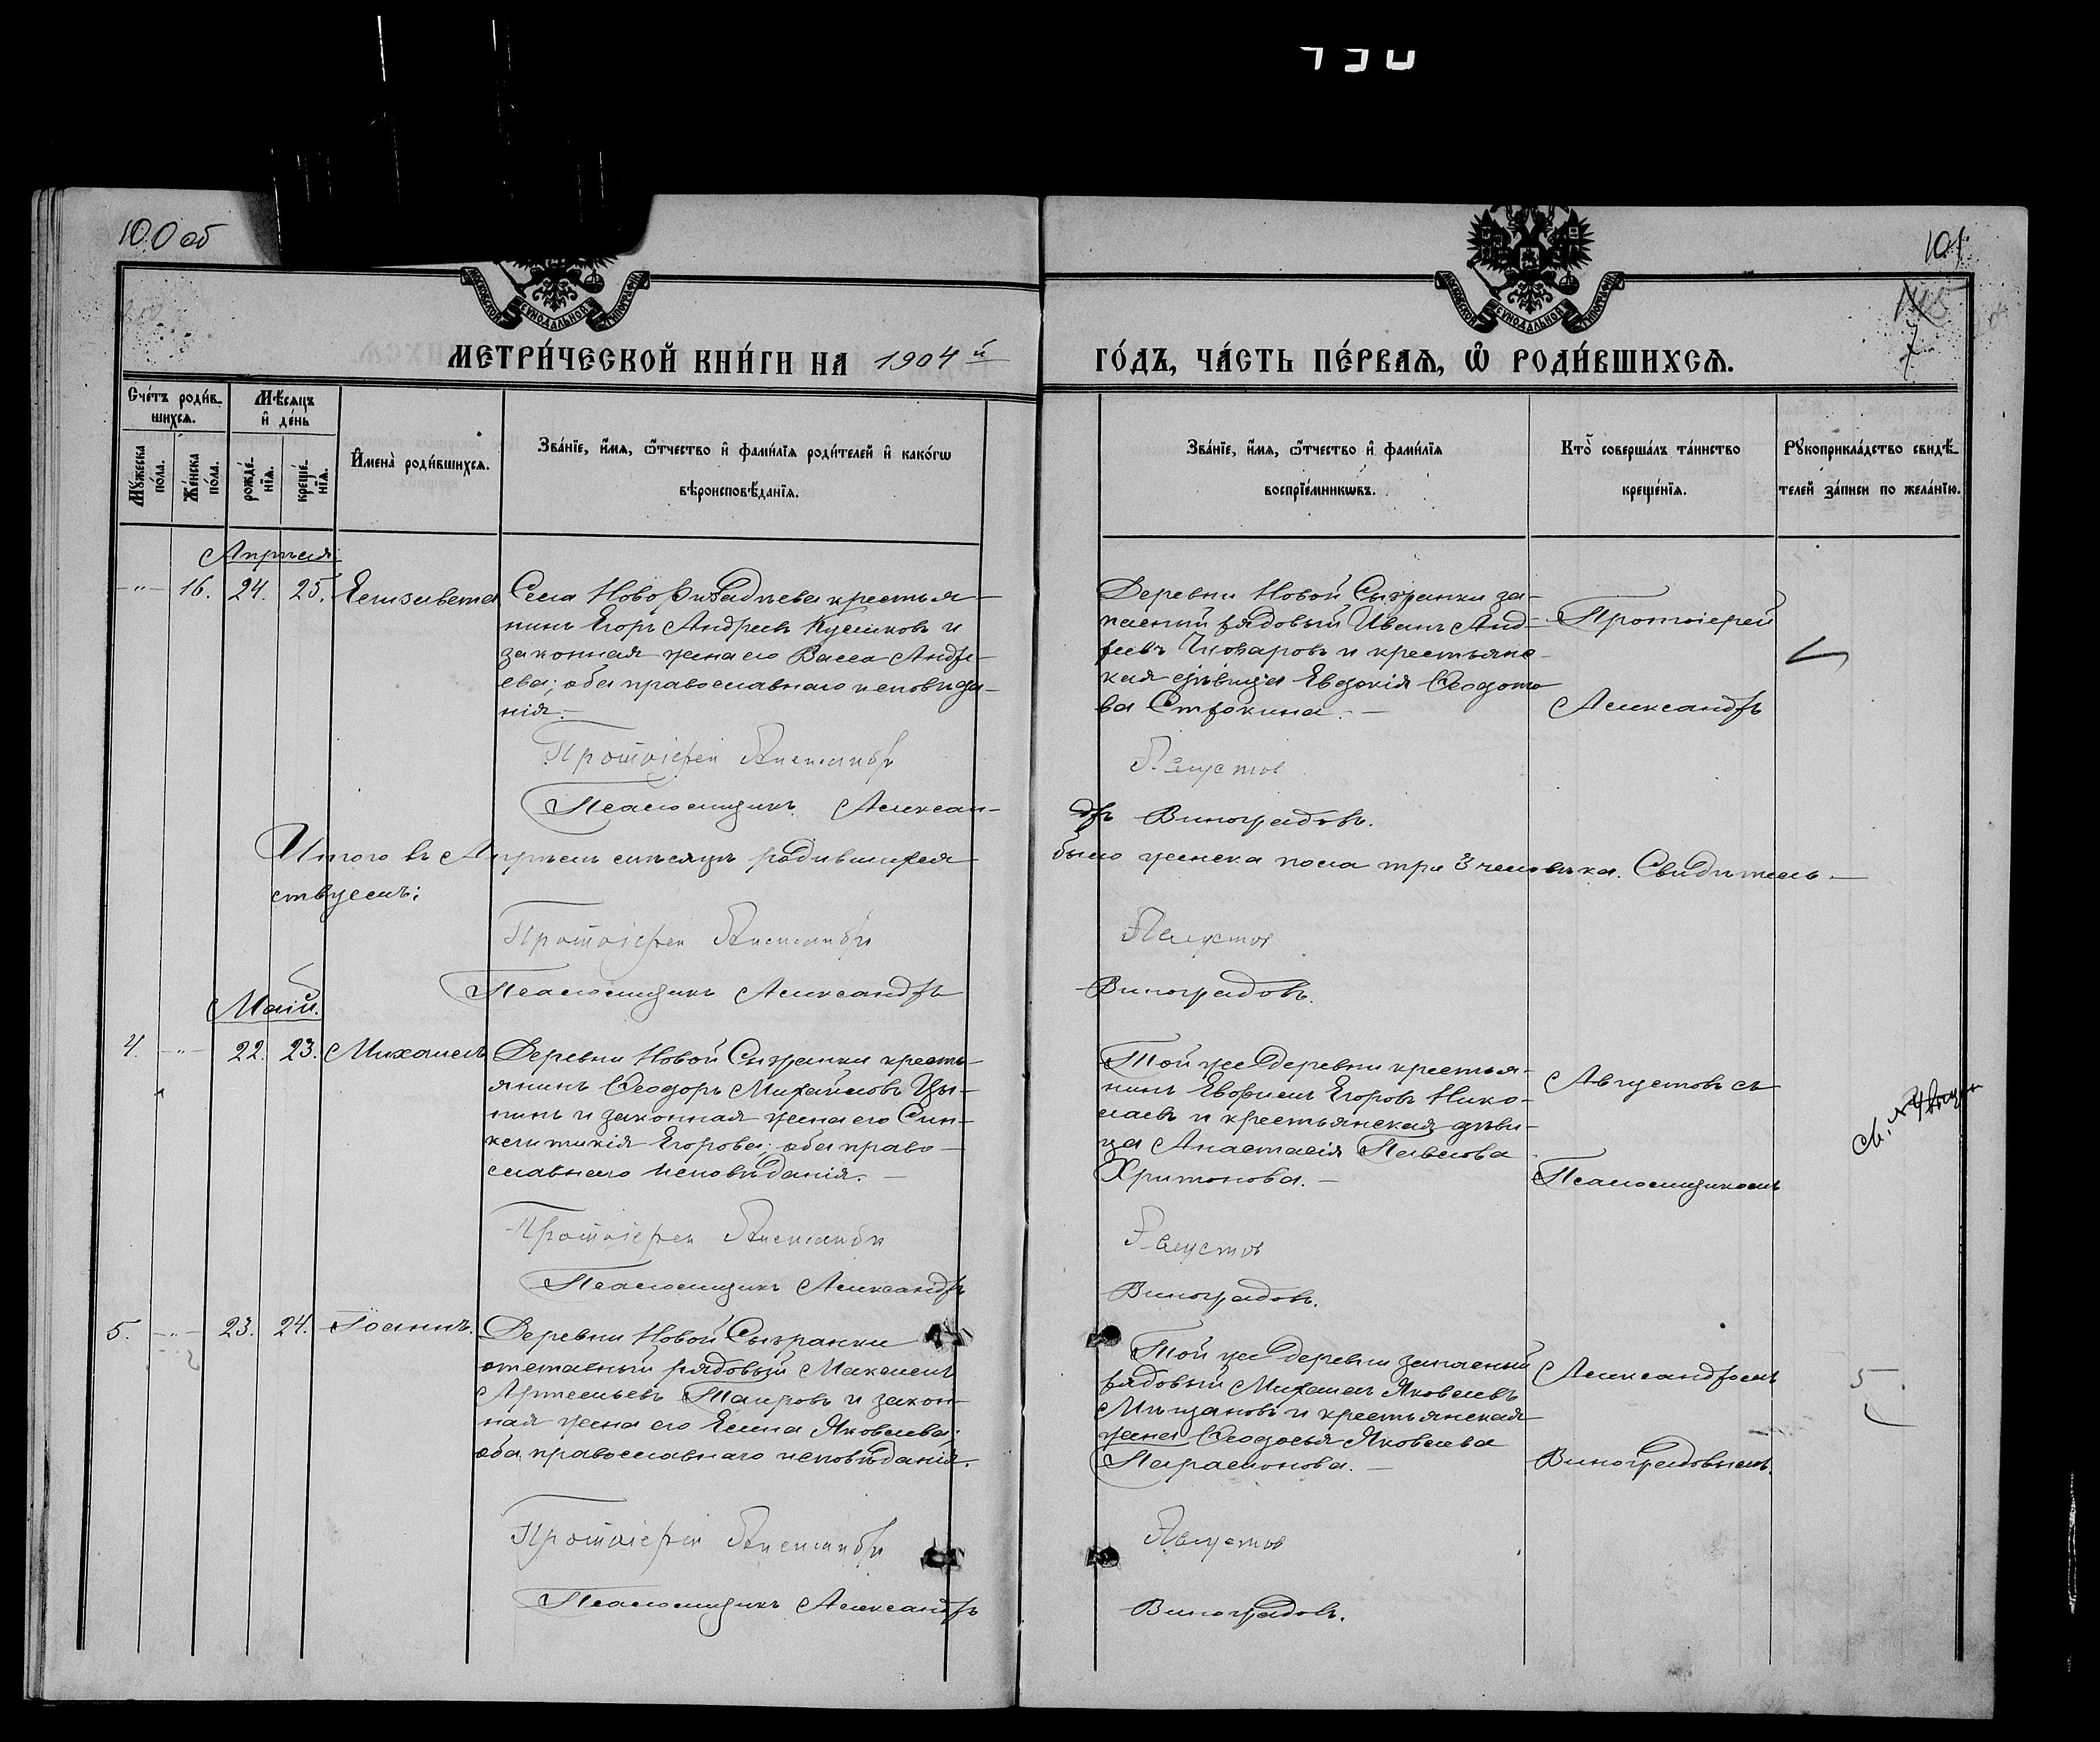 100 об
101
МОСКОВСКОЙ СѴНОДАЛЬНОЙ ТИПОГРАФІИ
МОСКОВСКОЙ СѴНОДАЛЬНОЙ ТИПОГРАФІИ
МЕТРИ́ЧЕСКОЙ КНИ́ГИ НА 1904 й
ГО́ДЪ, ЧА́СТЬ ПЕ́РВАѦ, Ѡ҆ РОДИ́ВШИХСѦ.
Сче́тъ роди́в-
шихсѧ.
Мѣ́сѧцъ
и҆ де́нь
Мꙋ́жеска по́ла.
Же́нска по́ла.
рожде́-нїѧ.
креще́-нїѧ.
И҆мена̀ роди́вшихсѧ.
Зва́нїе, и҆́мѧ, ѻ҆́тчество и҆ фами́лїѧ роди́телей и҆ како́гѡ
вѣроисповѣ́данїѧ.
Зва́нїе, и҆́мѧ, ѻ҆́тчество и҆ фами́лїѧ
воспрїе́мникѡвъ.
Кто̀ соверша́лъ та́инство
креще́нїѧ.
Рꙋкоприкла́дство свидѣ́-
телей за́писи по жела́нїю.
Апрѣля
-"- 16. 24. 25. Елизавета
Села Ново крестья-
нинъ Егоръ Андреевъ и
законная жена его Васса Андре-
ева; оба православнаго исповѣда-
нія.-
Протоіерей Александръ
Псаломщикъ Алексан-
Деревни Новой Сызранки за-
пасный рядовый Иванъ Анд-
реевъ и крестьянс-
кая дѣвица Евдокія Ѳеодото-
ва Строкина.-
Августов
дръ Виноградовъ.
Протоіерей
Александръ
Итого въ Апрѣлѣ мѣсяцѣ родившихся
было женска пола три 3 человѣка. Свидѣтель-
ствуемъ:
Протоіерей Александръ
Августов
Псаломщикъ Александръ
Виноградовъ.
Май.
4. -"- 22. 23. Михаилъ
Деревни Новой Сызранки кресть-
янинъ Ѳеодоръ Михайловъ Цы-
нинъ и законная жена его Син-
клитикія Егорова; оба право-
славнаго исповѣданія.-
Протоіерей Александръ
Псаломщикъ Александръ
Той же деревни крестья-
нинъ Евфимъ Егоровъ Нико-
лаевъ и крестьянская дѣви-
ца Анастасія Павлова
Харитонова.-
Августов
Виноградовъ.
Августовъ съ
Псаломщикомъ
5. -"- 23. 24. Іоаннъ.
Деревни Новой Сызранки
отставный рядовый Максимъ
Артемьевъ Таировъ и закон-
ная жена его Елена Яковлева;
оба православнаго исповѣданія.
Протоіерей Александръ
Псаломщикъ Александръ
Той же деревни запасный
рядовый Михаилъ Яковлевъ
Мѣщановъ и крестьянская
жена Ѳеодосья Яковлева
Парамонова.-
Августов
Виноградовъ.
Александромъ
Виноградовымъ.
5